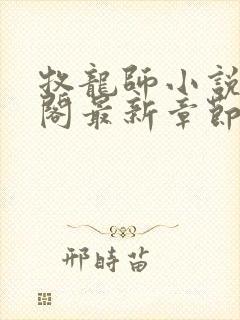 牧龍師小説
閣最新章節
邢時苗